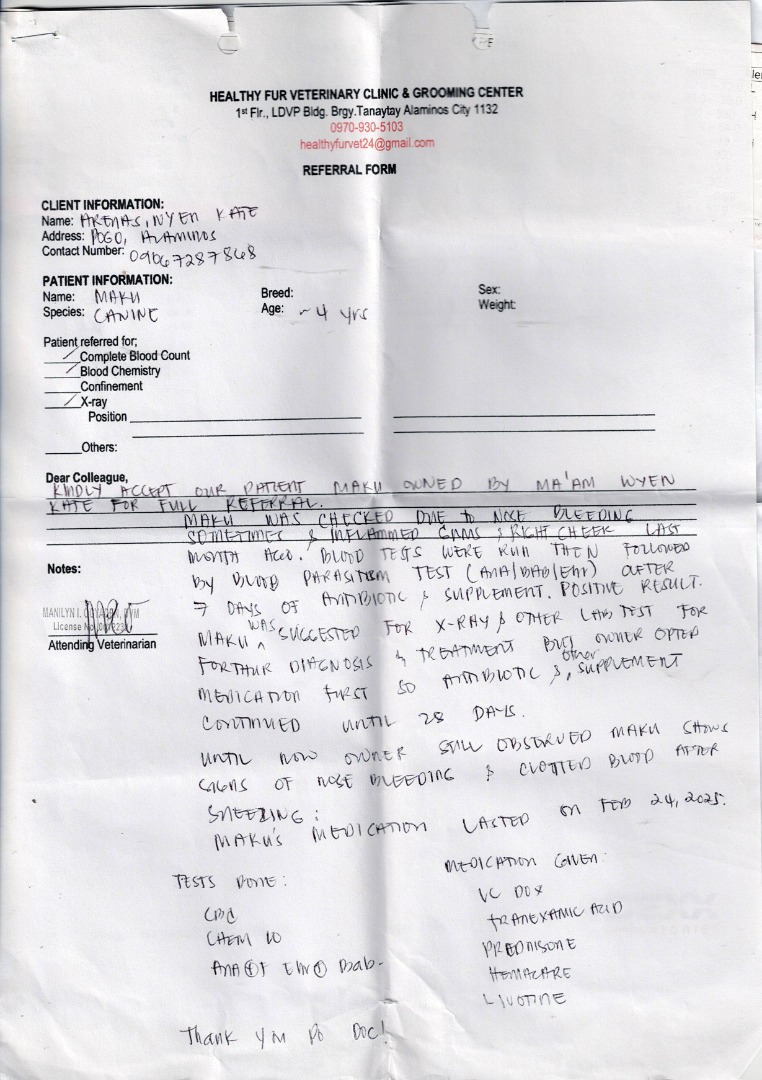 HEALTHY FUR VETERINARY CLINIC & GROOMING CENTER
1st Flr., LDVP Bldg. Brgy.Tanaytay Alaminos City 1132
0970-930-5103
healthyfurvet24@gmail.com
REFERRAL FORM
CLIENT INFORMATION:
Name: ARENAS, WYEN KATE
Address: POGO, ALAMINOS
Contact Number: 09067287868
PATIENT INFORMATION:
Name: MAKU Breed: Sex:
Species: CANINE Age: ~4 yrs Weight:
Patient referred for;
/ Complete Blood Count
/ Blood Chemistry
Confinement
/ X-ray
Position
Others:
Dear Colleague,
KINDLY ACCEPT OUR PATIENT MAKU OWNED BY MA'AM WYEN
KATE FOR FULL REFERRAL.
MAKU WAS CHECKED DUE to NOSE BLEEDING
SOMETIMES & INFLAMMED GUMS & RIGHT CHEEK LAST
MONTH AGO. BLOOD TESTS WERE RUN THEN FOLLOWED
Notes:
BY BLOOD PARASITISM TEST (ANA/BAB/EHR) AFTER
7 DAYS OF ANTIBIOTIC & SUPPLEMENT. POSITIVE RESULT.
MAKU WAS SUGGESTED FOR X-RAY & OTHER LAB TEST FOR
FORTHUR DIAGNOSIS & TREATMENT BUT OWNER OPTED
MEDICATION FIRST SO ANTIBIOTIC & other SUPPLEMENT
CONTINUED UNTIL 28 DAYS.
MANILYN I.
License No.
Attending Veterinarian
UNTIL NOW OWNER STILL OBSERVED MAKU SHOWS
SIGNS OF NOSE BLEEDING & CLOTTED BLOOD AFTER
SNEEZING:
MAKU'S MEDICATION LASTED ON FEB 24, 2025.
TESTS DONE:
CBC
CHEM 10
ANA + EHR + Bab-
MEDICATION GIVEN:
VC DOX
TRANEXAMIC ACID
PREDNISONE
HEMACARE
LIVOTINE
Thank you po Doc!